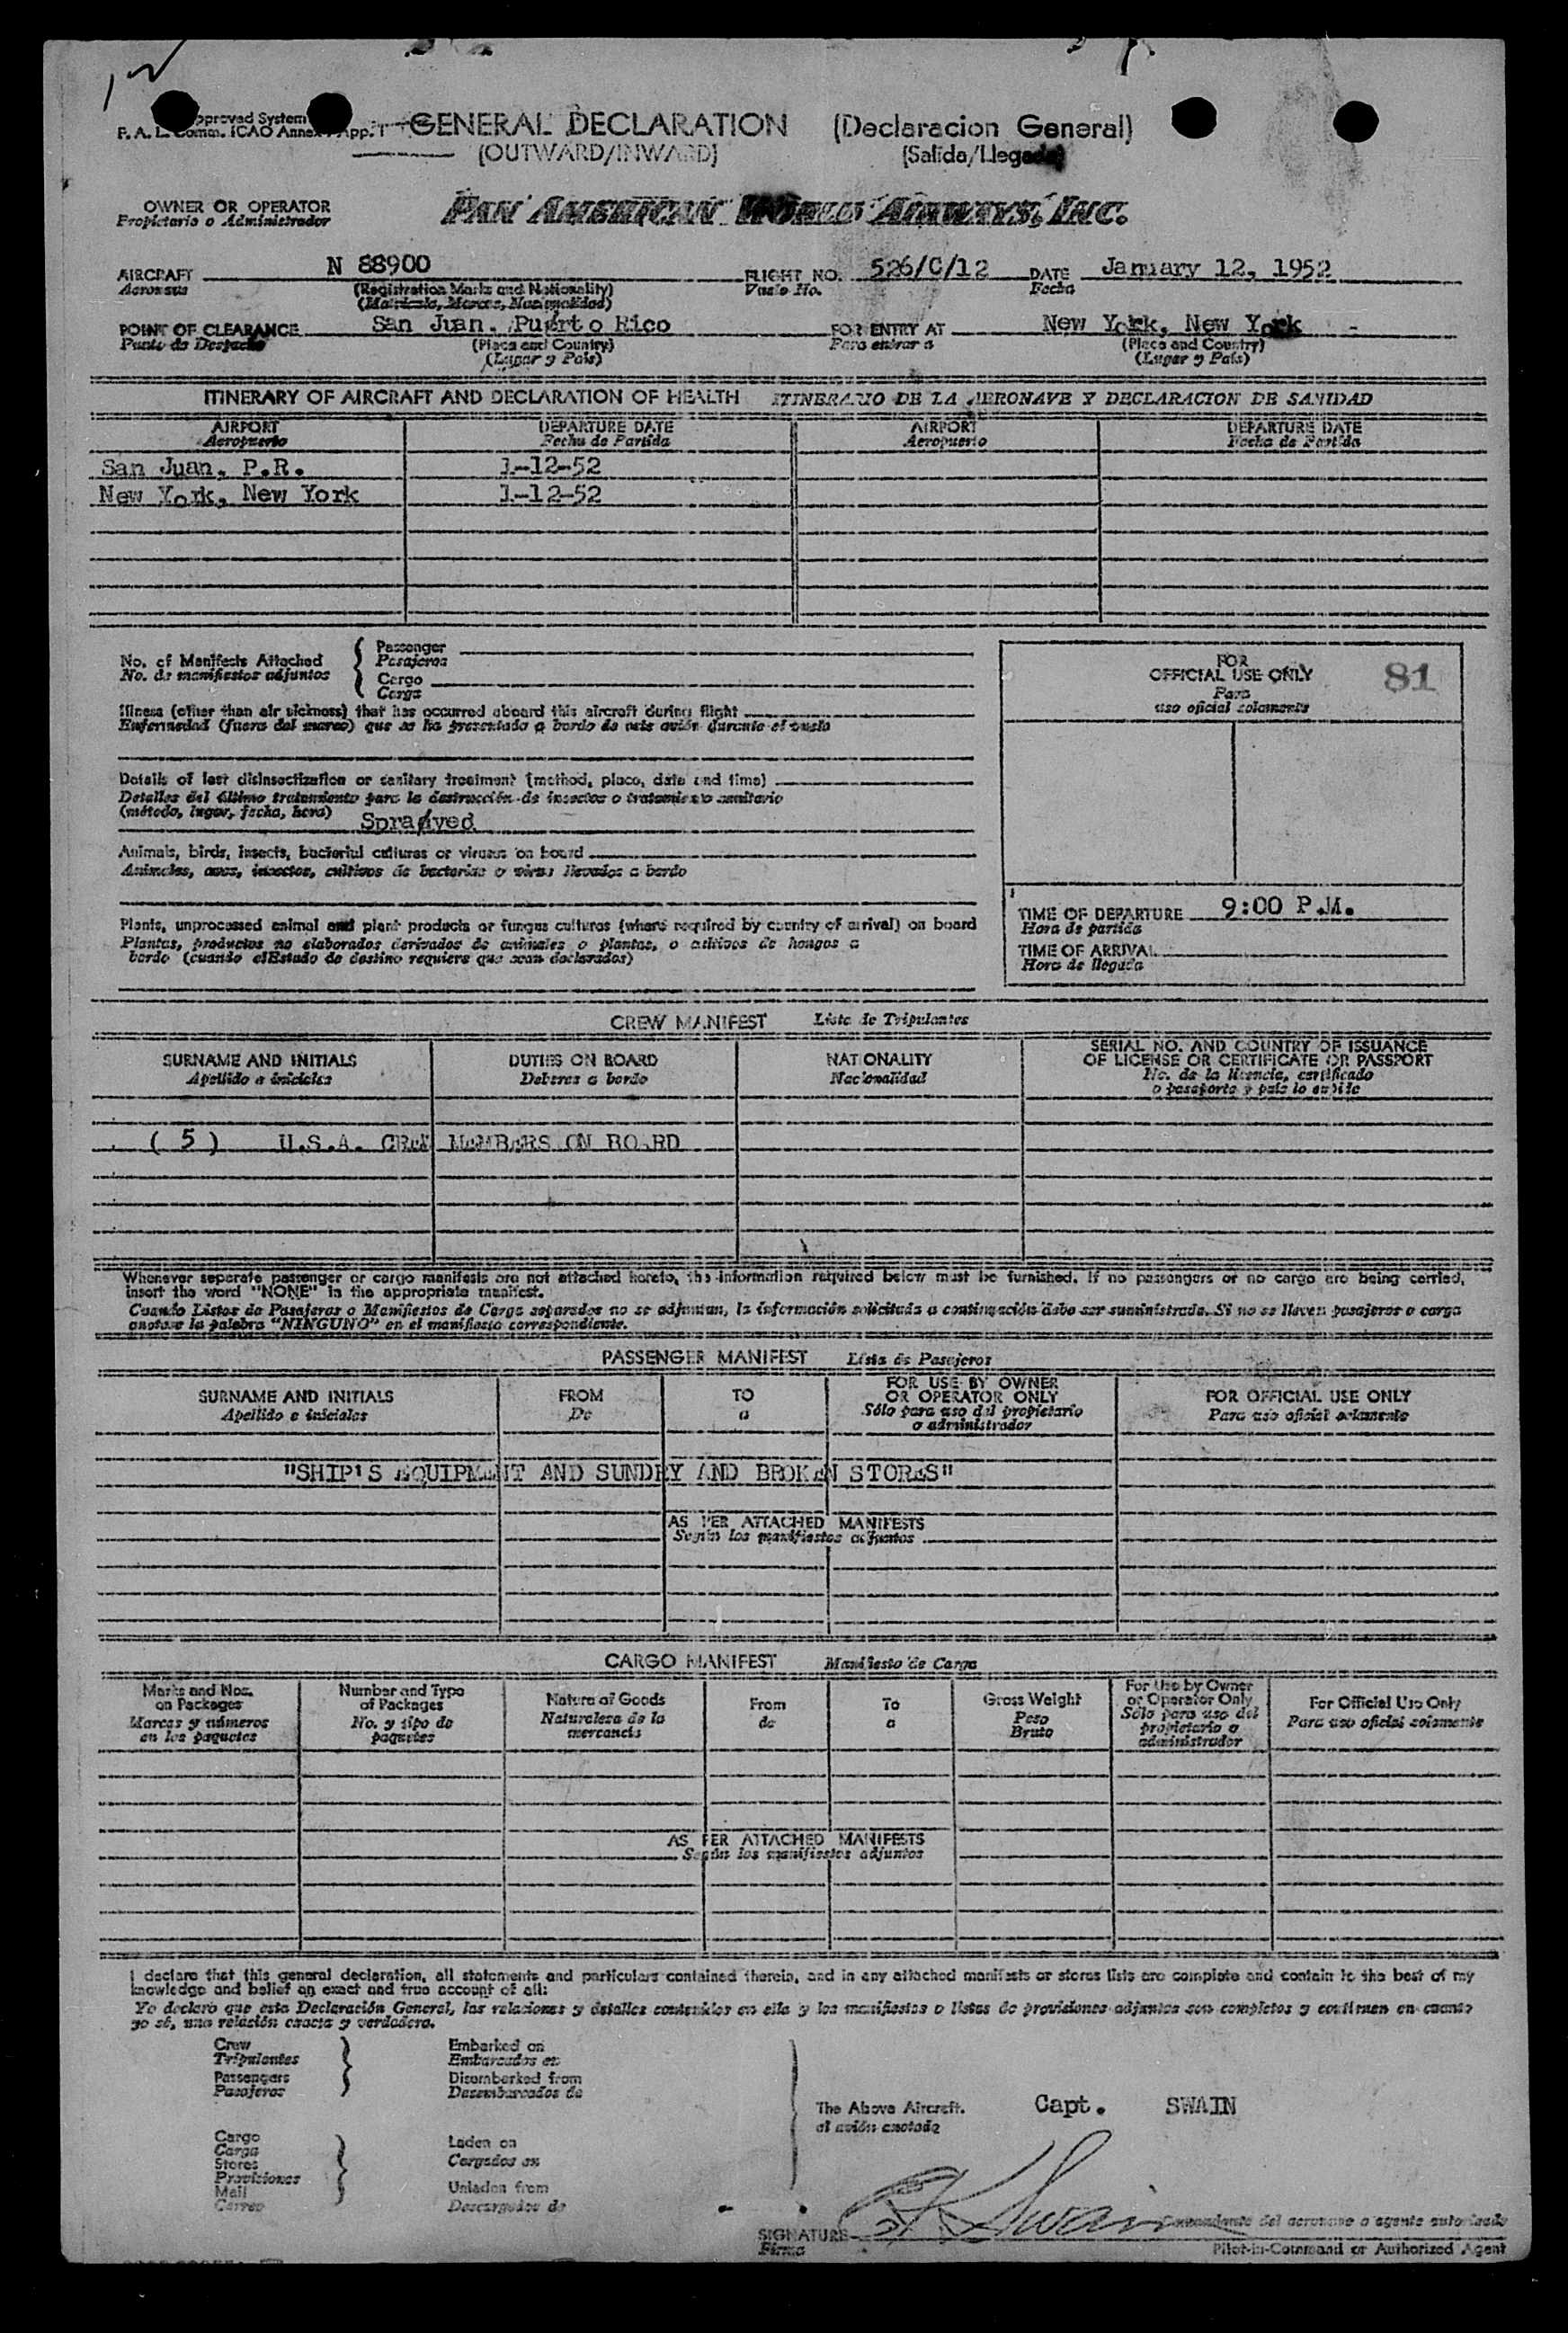 Approved System
F. A. L. Comm. ICAO Annex App. 1
GENERAL DECLARATION (Declaracion General)
(OUTWARD/INWARD) (Salida/Llegada)
OWNER OR OPERATOR
Propietario o Administrador
PAN AMERICAN WORLD AIRWAYS, INC.
AIRCRAFT N 88900 FLIGHT NO. 526/C/12 DATE January 12, 1952
Aeronave (Registration Marks and Nationality) Vuelo No. Fecha
(Matricula, Marcas, Nacionalidad)
POINT OF CLEARANCE San Juan, Puerto Rico FOR ENTRY AT New York, New York
Punto de Despacho (Place and Country) Para entrar a (Place and Country)
(Lugar y País) (Lugar y País)
ITINERARY OF AIRCRAFT AND DECLARATION OF HEALTH ITINERARIO DE LA AERONAVE Y DECLARACION DE SANIDAD
AIRPORT DEPARTURE DATE AIRPORT DEPARTURE DATE
Aeropuerto Fecha de Partida Aeropuerto Fecha de Partida
San Juan, P.R. 1-12-52
New York, New York 1-12-52
No. of Manifests Attached
No. de manifiestos adjuntos
Passenger
Pasajeros
Cargo
Carga
FOR
OFFICIAL USE ONLY 81
Para
uso oficial solamente
Illness (other than air sickness) that has occurred aboard this aircraft during flight
Enfermedad (fuera del mareo) que se ha presentado a bordo de este avión durante el vuelo
Details of last disinsectization or sanitary treatment (method, place, date and time)
Detalles del último tratamiento para la destrucción de insectos o tratamiento sanitario
(método, lugar, fecha, hora) Sprayed
Animals, birds, insects, bacterial cultures or viruses on board
Animales, aves, insectos, cultivos de bacterias o virus llevados a bordo
Plants, unprocessed animal and plant products or fungus cultures (where required by country of arrival) on board
Plantas, productos no elaborados derivados de animales o plantas, o cultivos de hongos a
bordo (cuando el Estado de destino requiera que sean declarados)
TIME OF DEPARTURE 9:00 P.M.
Hora de partida
TIME OF ARRIVAL
Hora de llegada
CREW MANIFEST Lista de Tripulantes
SURNAME AND INITIALS DUTIES ON BOARD NATIONALITY SERIAL NO. AND COUNTRY OF ISSUANCE
OF LICENSE OR CERTIFICATE OR PASSPORT
Apellido e iniciales Deberes a bordo Nacionalidad No. de la licencia, certificado
o pasaporte y país lo expide
( 5 ) U.S.A. CREW MEMBERS ON BOARD
Whenever separate passenger or cargo manifests are not attached hereto, the information required below must be furnished. If no passengers or no cargo are being carried,
insert the word "NONE" in the appropriate manifest.
Cuando Listas de Pasajeros o Manifiestos de Carga separados no se adjuntan, la información solicitada a continuación debe ser suministrada. Si no se lleven pasajeros o carga
anotese la palabra "NINGUNO" en el manifiesto correspondiente.
PASSENGER MANIFEST Lista de Pasajeros
SURNAME AND INITIALS FROM TO FOR USE BY OWNER
OR OPERATOR ONLY FOR OFFICIAL USE ONLY
Apellido e iniciales De a Sólo para uso del propietario
o administrador Para uso oficial solamente
"SHIP'S EQUIPMENT AND SUNDRY AND BROKEN STORES"
AS PER ATTACHED MANIFESTS
Según los manifiestos adjuntos
CARGO MANIFEST Manifiesto de Carga
Marks and Nos.
on Packages
Marcas y números
en los paquetes
Number and Type
of Packages
No. y tipo de
paquetes
Nature of Goods
Naturaleza de la
mercancía
From
de
To
a
Gross Weight
Peso
Bruto
For Use by Owner
or Operator Only
Sólo para uso del
propietario o
administrador
For Official Use Only
Para uso oficial solamente
AS PER ATTACHED MANIFESTS
Según los manifiestos adjuntos
I declare that this general declaration, all statements and particulars contained therein, and in any attached manifests or stores lists are complete and contain to the best of my
knowledge and belief an exact and true account of all:
Yo declaro que esta Declaración General, las relaciones y detalles contenidos en ella y los manifiestos o listas de provisiones adjuntas son completos y contienen en cuanto
yo sé, una relación exacta y verdadera.
Crew
Tripulantes
Passengers
Pasajeros
Embarked on
Embarcados en
Disembarked from
Desembarcados de
Cargo
Carga
Stores
Provisiones
Mail
Correo
Laden on
Cargados en
Unladen from
Descargados de
The Above Aircraft.
el avión anotado
Capt. SWAIN
SIGNATURE Swain
Firma
Comandante del aeronave o agente autorizado
Pilot-in-Command or Authorized Agent